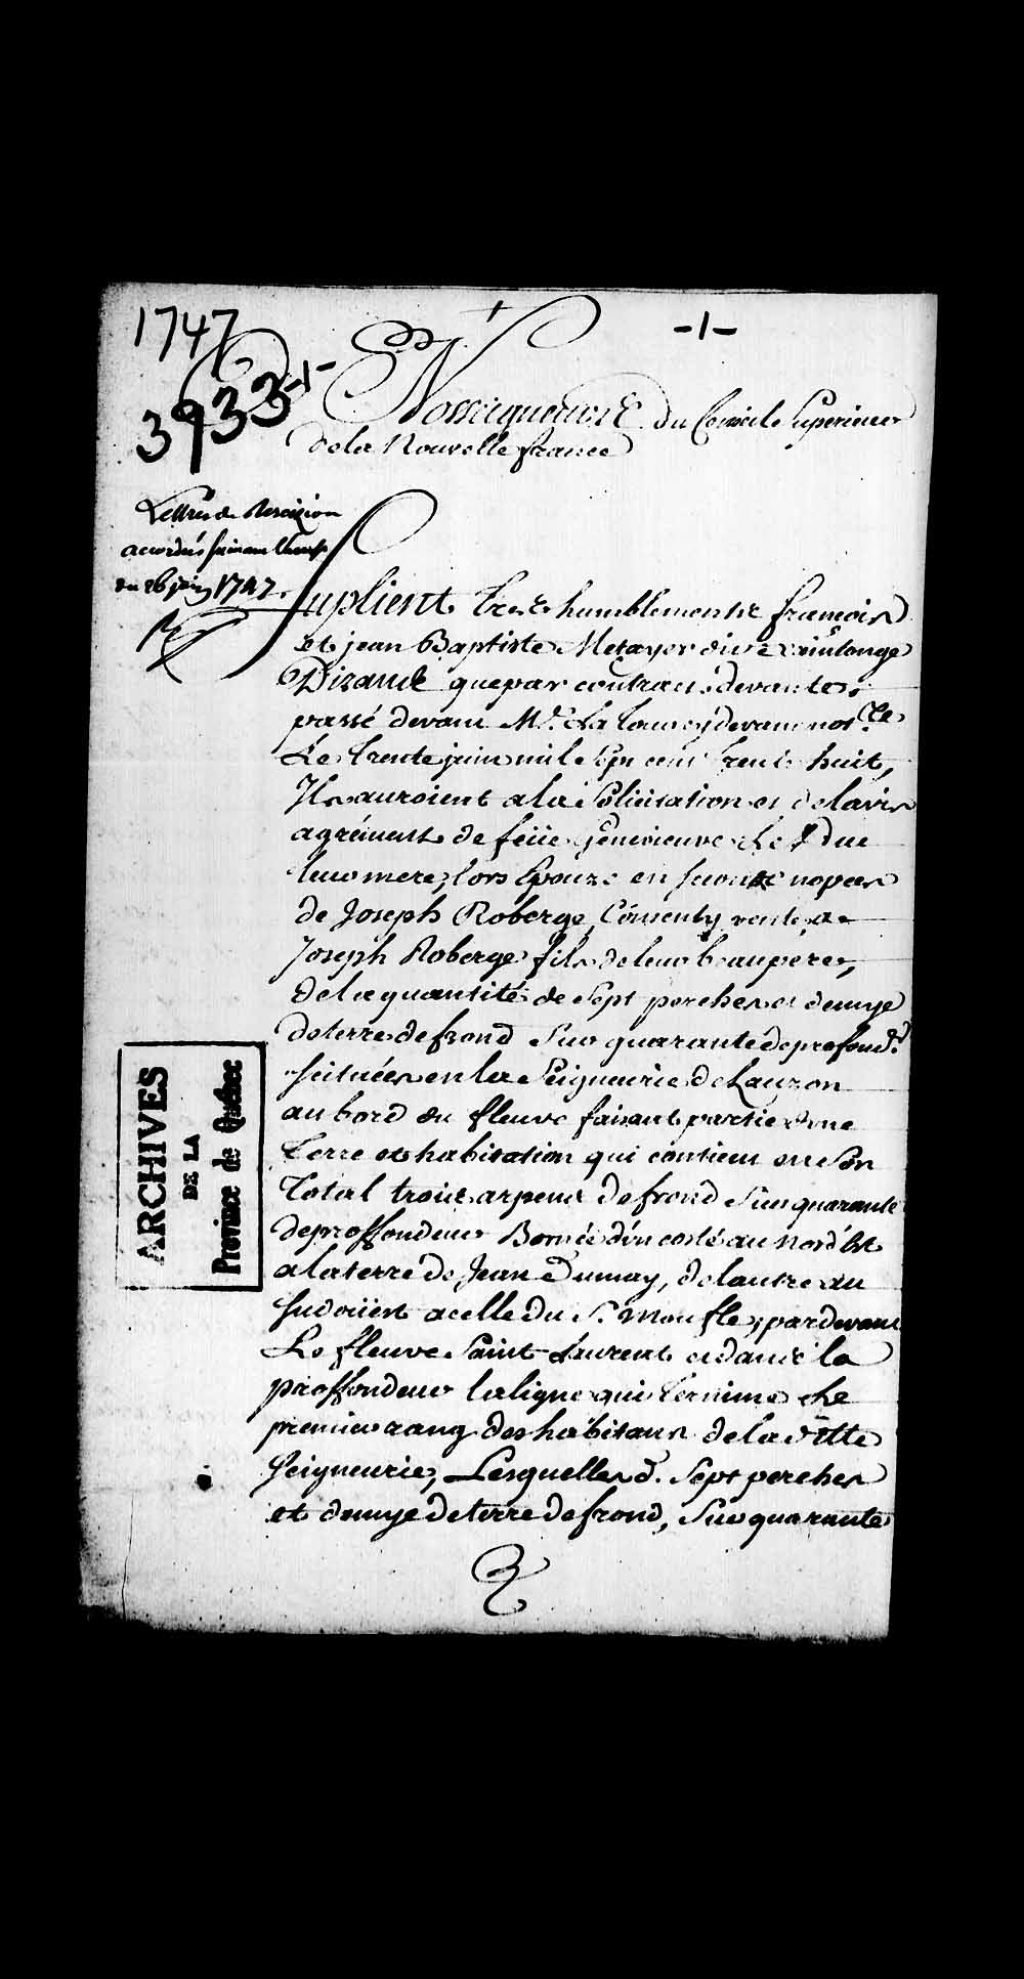 1747
-1-
3933-1-
Nosseigneurs du Conseil Superieur
de la Nouvelle france
Lettres de Rescizion
accordées suivant
du 26 juin 1747.
Suplient tres humblement françois
et jean Baptiste Metayer dit Xaintonge
Dizant que par contract de vante
passé devant Me. La Tour cy devant not.re
Le trente juin mil Sept cent trente huit,
Ils auroient a la Solicitation et de lavis
agrément de feüe Genevieuve Le Duc
leur mere, lors Epouze en secondes nopces
de Joseph Roberge, Consenty vente a
Joseph Roberge fils de leur beaupere,
de la quantité de Sept perches et demye
de terre de frond Sur quarante de profond.r
scituées en la Seigneurie de Lauzon
au bord du fleuve faisant partie d'une
terre et habitation qui contient en Son
Total trois arpens de frond Sur quarante
de proffondeur Bornée d'un costé au Nord'Est
a la terre de Jean Dumay, de lautre au
Sudoüest a celle du Sr. Moufle, par devant
Le fleuve Saint Laurent et dans la
proffondeur la ligne qui termine Le
premier rang des habitans de la ditte
Seigneurie, Lesquelles d. Sept perches
et demye de terre de frond, Sur quarante
ARCHIVES
DE LA
Province de Québec